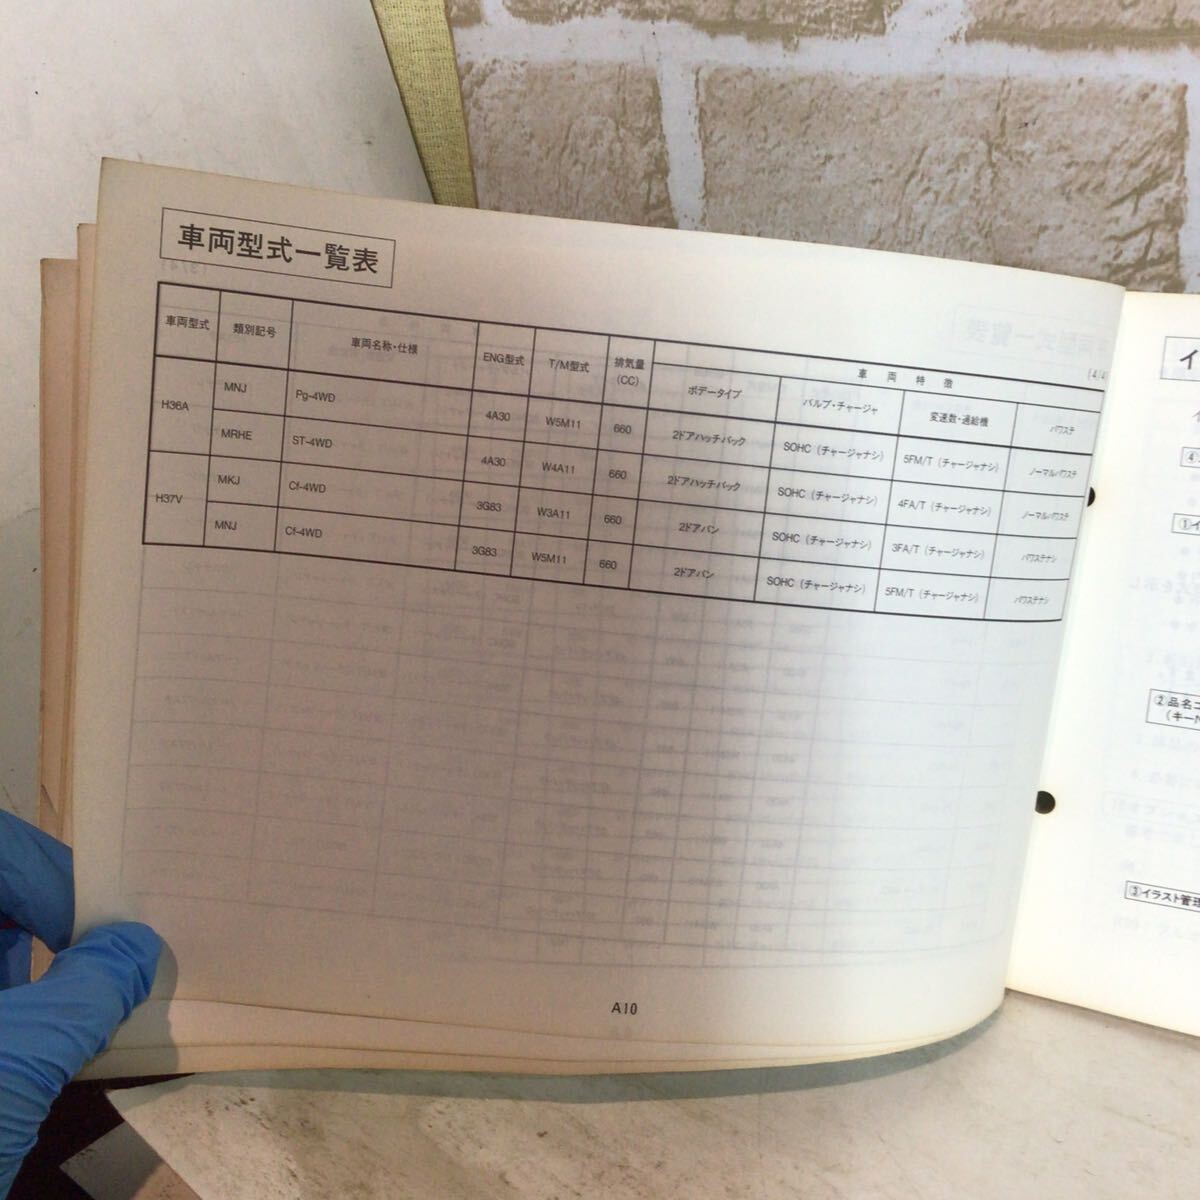 車両型式一覧表
(4/4)
車両型式 類別記号 車両名称・仕様 ENG型式 T/M型式 排気量(CC) 車両特徴
ボデータイプ バルブ・チャージャ 変速数・過給機 パワステ
H36A MNJ Pg-4WD 4A30 W5M11 660 2ドアハッチバック SOHC (チャージャナシ) 5FM/T (チャージャナシ) ノーマルパワステ
MRHE ST-4WD 4A30 W4A11 660 2ドアハッチバック SOHC (チャージャナシ) 4FA/T (チャージャナシ) ノーマルパワステ
H37V MKJ Cf-4WD 3G83 W3A11 660 2ドアバン SOHC (チャージャナシ) 3FA/T (チャージャナシ) パワステナシ
MNJ Cf-4WD 3G83 W5M11 660 2ドアバン SOHC (チャージャナシ) 5FM/T (チャージャナシ) パワステナシ
A10
イ
④
①イ
②品名コ
(キーN
③イラスト管理